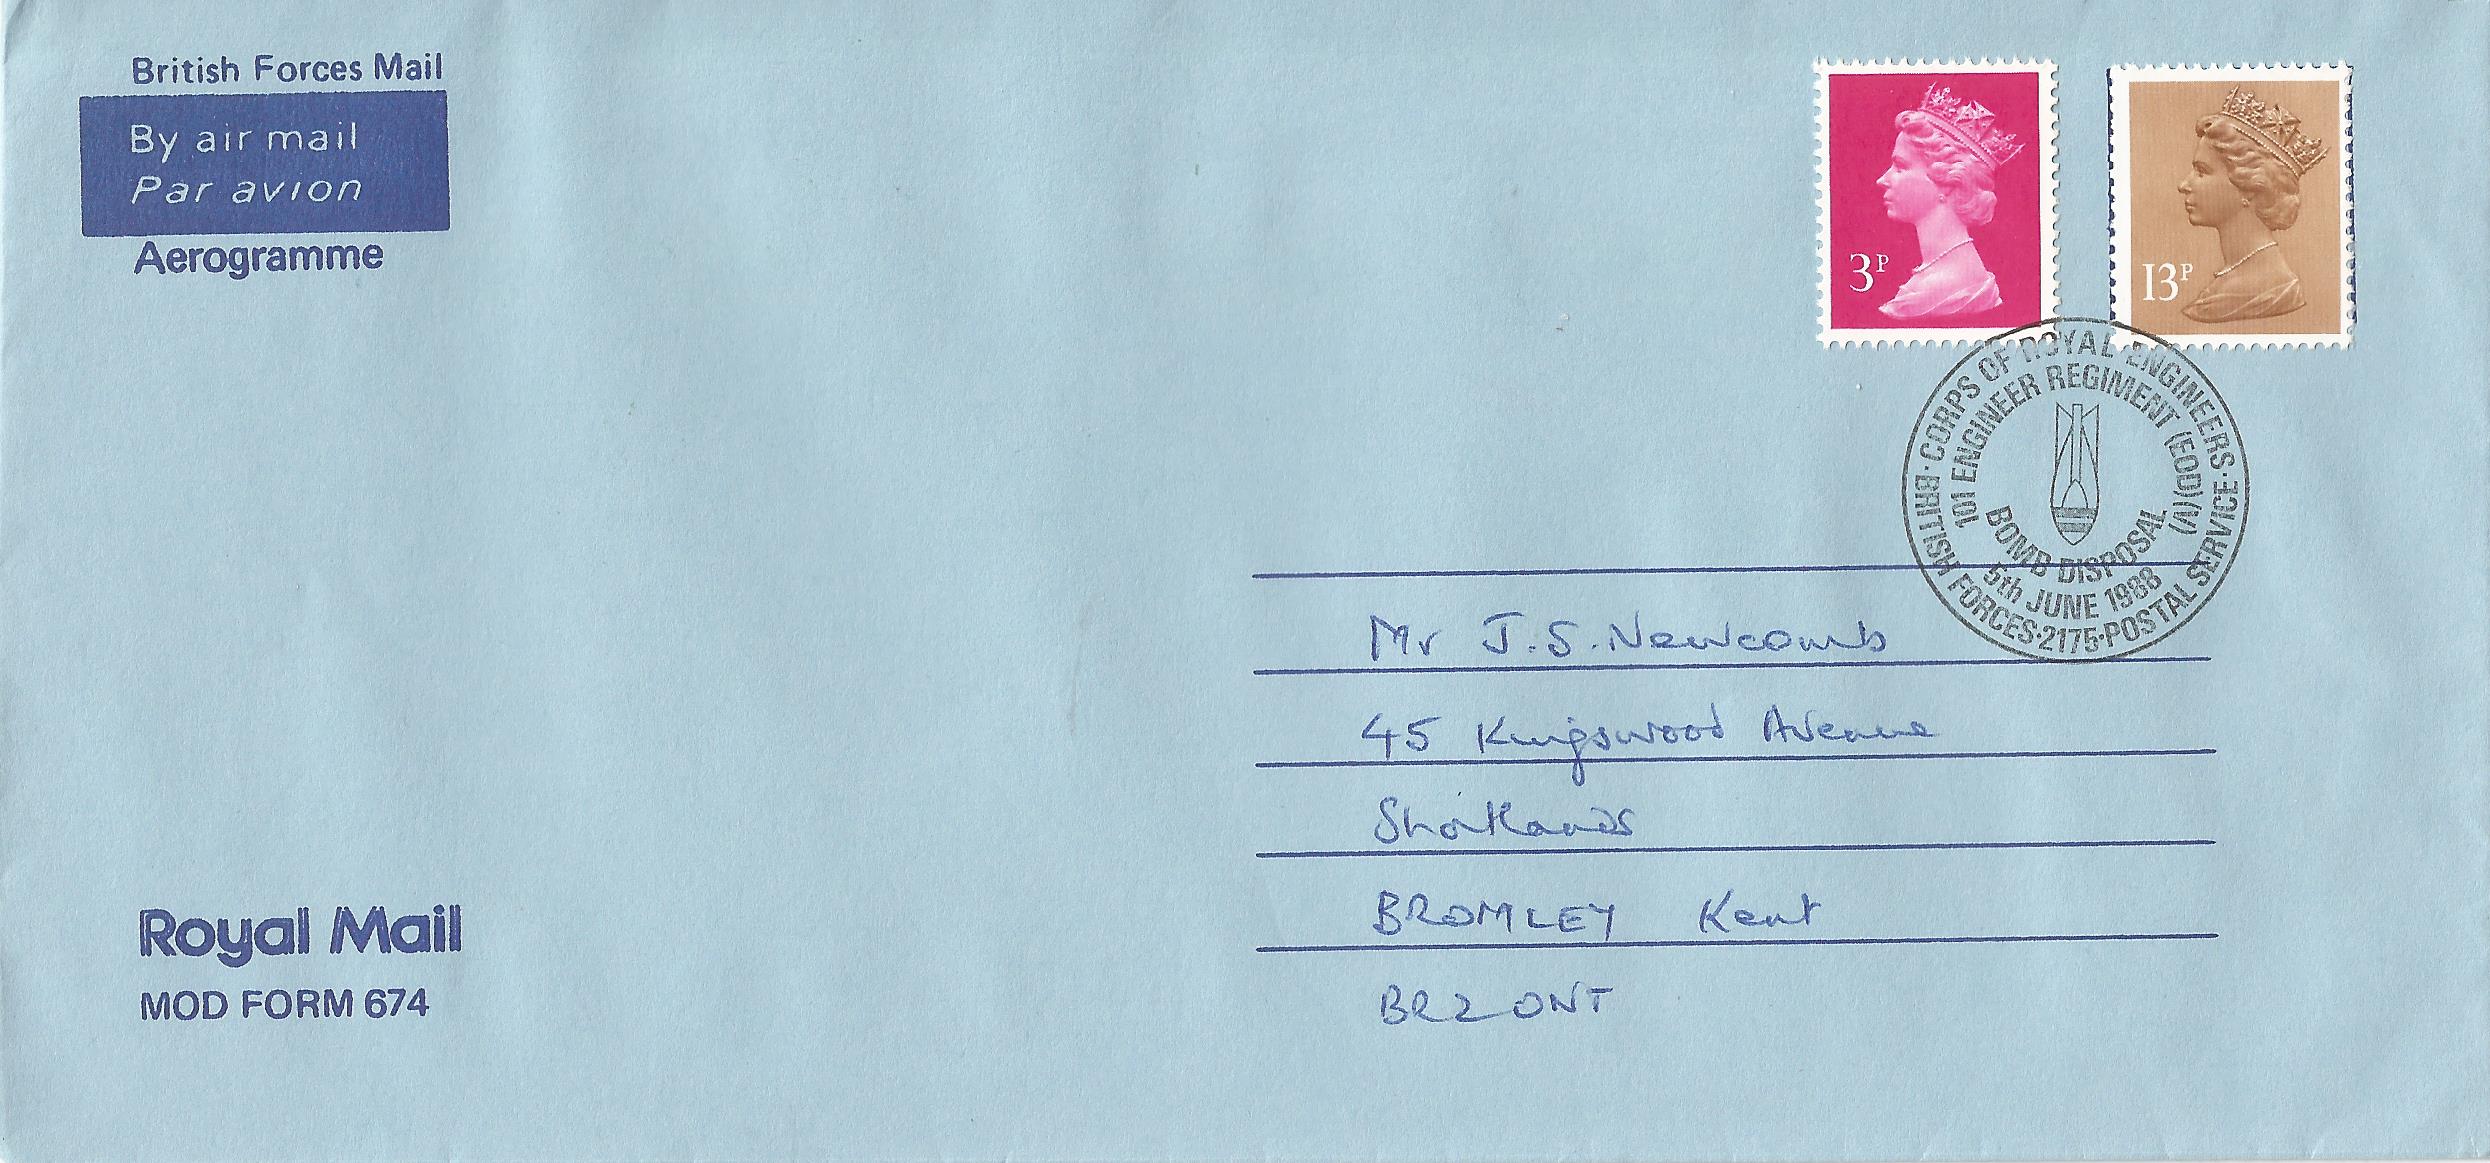 British Forces Mail
By air mail
Par avion
Aerogramme
3P
13P
· CORPS OF ROYAL ENGINEERS ·
101 ENGINEER REGIMENT (EOD)(V)
BOMB DISPOSAL
5th JUNE 1988
BRITISH FORCES · 2175 · POSTAL SERVICE
Mr J.S. Newcomb
45 Kingswood Avenue
Shortlands
BROMLEY Kent
BR2 0NT
Royal Mail
MOD FORM 674